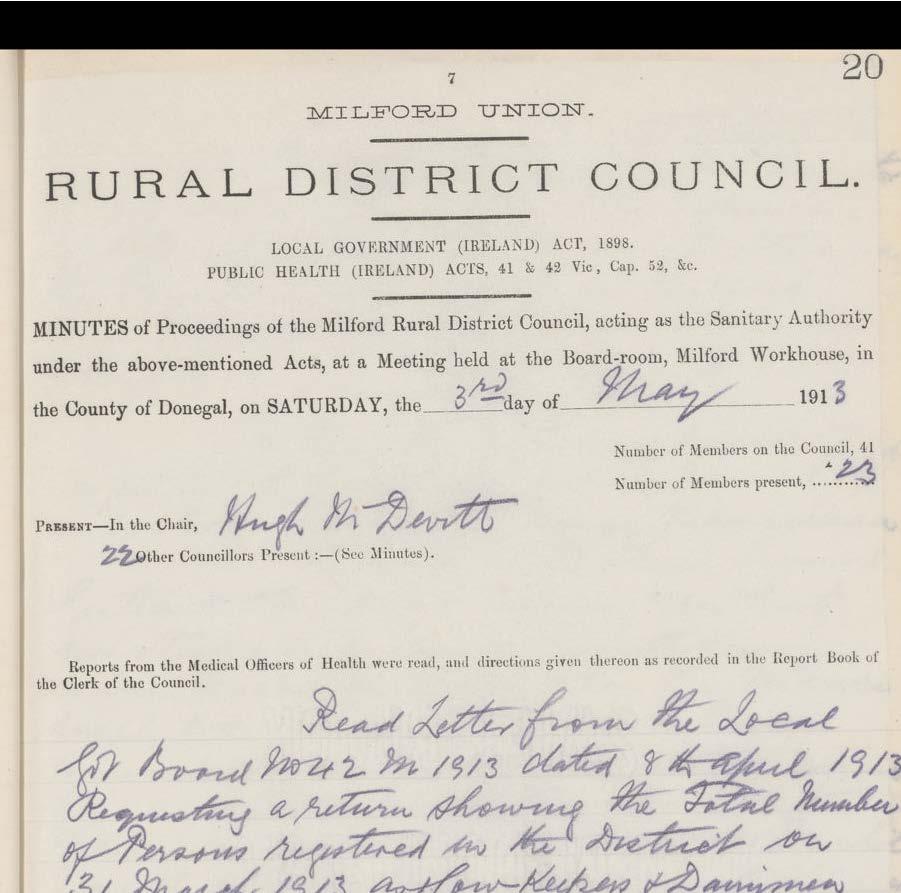 20
7
MILFORD UNION.
RURAL DISTRICT COUNCIL.
LOCAL GOVERNMENT (IRELAND) ACT, 1898.
PUBLIC HEALTH (IRELAND) ACTS, 41 & 42 Vic, Cap. 52, &c.
MINUTES of Proceedings of the Milford Rural District Council, acting as the Sanitary Authority
under the above-mentioned Acts, at a Meeting held at the Board-room, Milford Workhouse, in
the County of Donegal, on SATURDAY, the 3rd day of May 1913
Number of Members on the Council, 41
Number of Members present, 23
PRESENT—In the Chair, Hugh McDevitt
22 Other Councillors Present :—(See Minutes).
Reports from the Medical Officers of Health were read, and directions given thereon as recorded in the Report Book of
the Clerk of the Council.
Read Letter from the Local
Govt Board No 42 M 1913 dated 8th April 1913
Requesting a return showing the Total Number
of Persons registered in the District on
31 March 1913 as Cow-Keepers & Dairymen